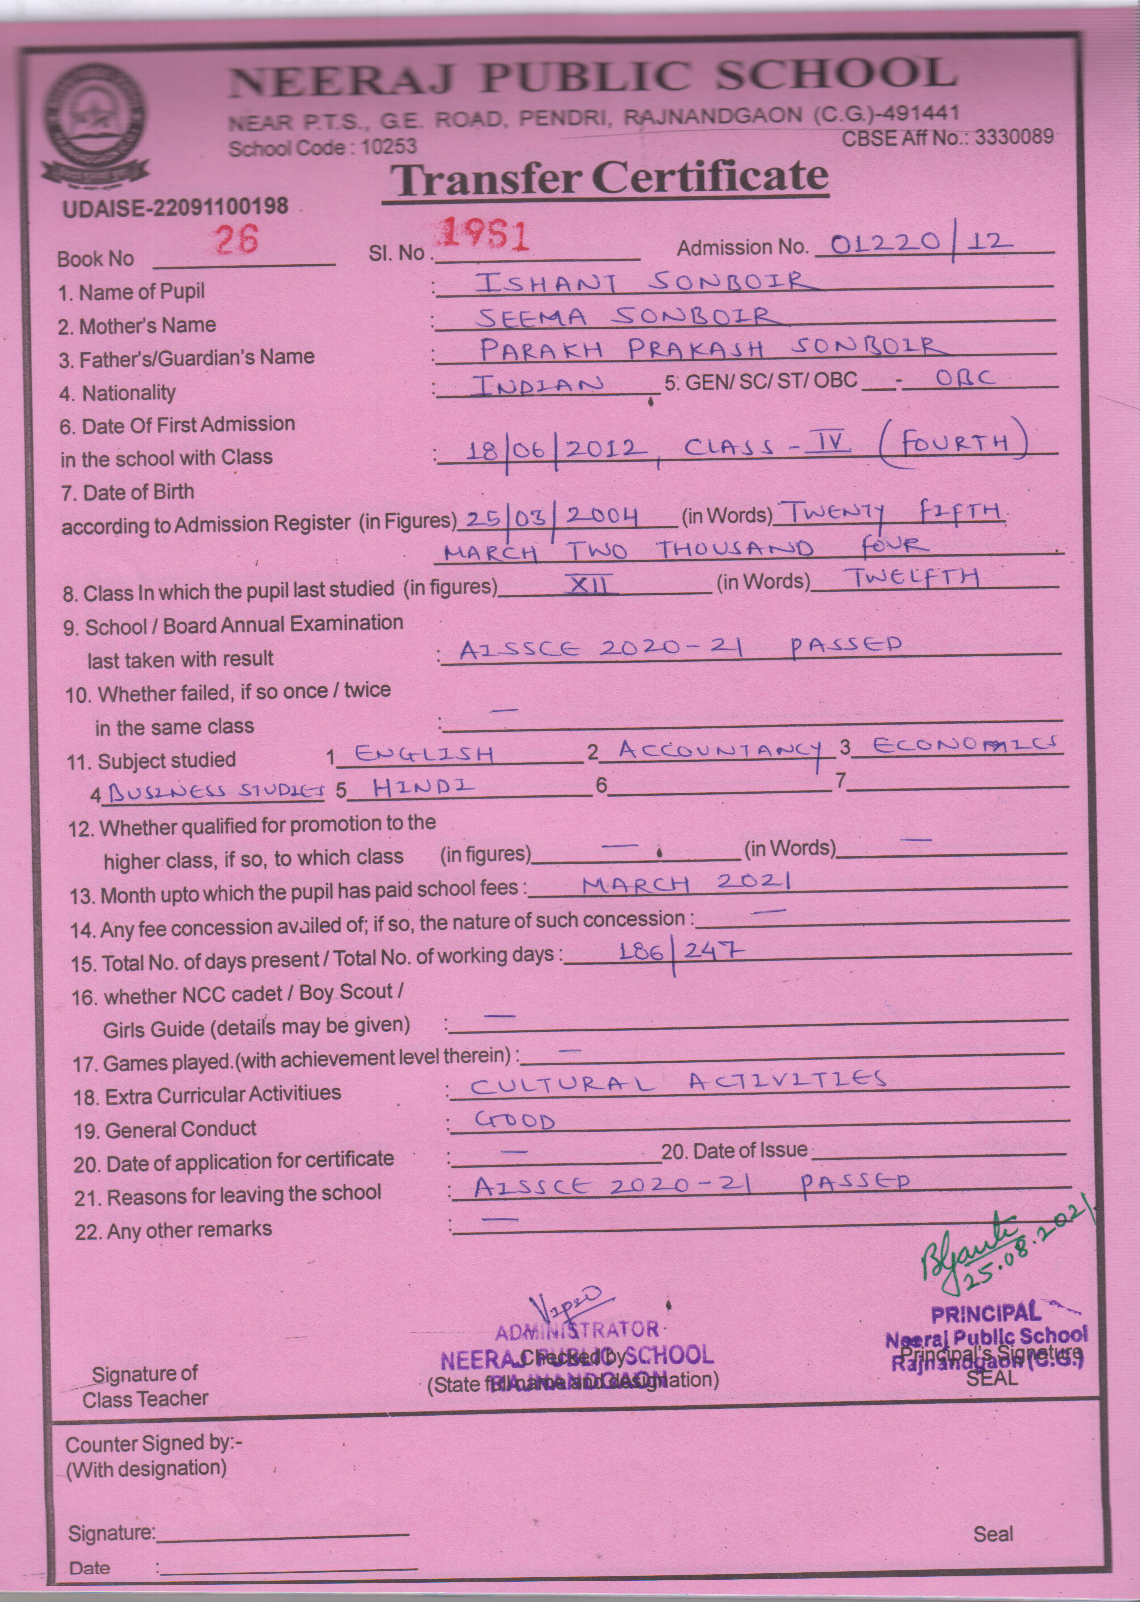 NEERAJ PUBLIC SCHOOL
NEAR P.T.S., G.E. ROAD, PENDRI, RAJNANDGAON (C.G.)-491441
School Code : 10253 CBSE Aff No.: 3330089
Transfer Certificate
UDAISE-22091100198
Book No 26 Sl. No. 1981 Admission No. 01220/12
1. Name of Pupil : ISHANT SONBOIR
2. Mother's Name : SEEMA SONBOIR
3. Father's/Guardian's Name : PARAKH PRAKASH SONBOIR
4. Nationality : INDIAN 5. GEN/ SC/ ST/ OBC - OBC
6. Date Of First Admission
in the school with Class : 18/06/2012, CLASS - IV (FOURTH)
7. Date of Birth
according to Admission Register (in Figures) 25/03/2004 (in Words) TWENTY FIFTH
MARCH TWO THOUSAND FOUR
8. Class In which the pupil last studied (in figures) XII (in Words) TWELFTH
9. School / Board Annual Examination
last taken with result : AISSCE 2020-21 PASSED
10. Whether failed, if so once / twice
in the same class : —
11. Subject studied 1 ENGLISH 2 ACCOUNTANCY 3 ECONOMICS
4 BUSINESS STUDIES 5 HINDI 6 7
12. Whether qualified for promotion to the
higher class, if so, to which class (in figures) — (in Words) —
13. Month upto which the pupil has paid school fees : MARCH 2021
14. Any fee concession availed of; if so, the nature of such concession : —
15. Total No. of days present / Total No. of working days : 186/247
16. whether NCC cadet / Boy Scout /
Girls Guide (details may be given) : —
17. Games played.(with achievement level therein) : —
18. Extra Curricular Activitiues : CULTURAL ACTIVITIES
19. General Conduct : GOOD
20. Date of application for certificate : — 20. Date of Issue
21. Reasons for leaving the school : AISSCE 2020-21 PASSED
22. Any other remarks : —
25.08.2021
ADMINISTRATOR
NEERAJ PUBLIC SCHOOL
RAJNANDGAON
PRINCIPAL
Neeraj Public School
Rajnandgaon (C.G.)
Signature of
Class Teacher
Checked by
(State full name and designation)
Principal's Signature
SEAL
Counter Signed by:-
(With designation)
Signature: Seal
Date :